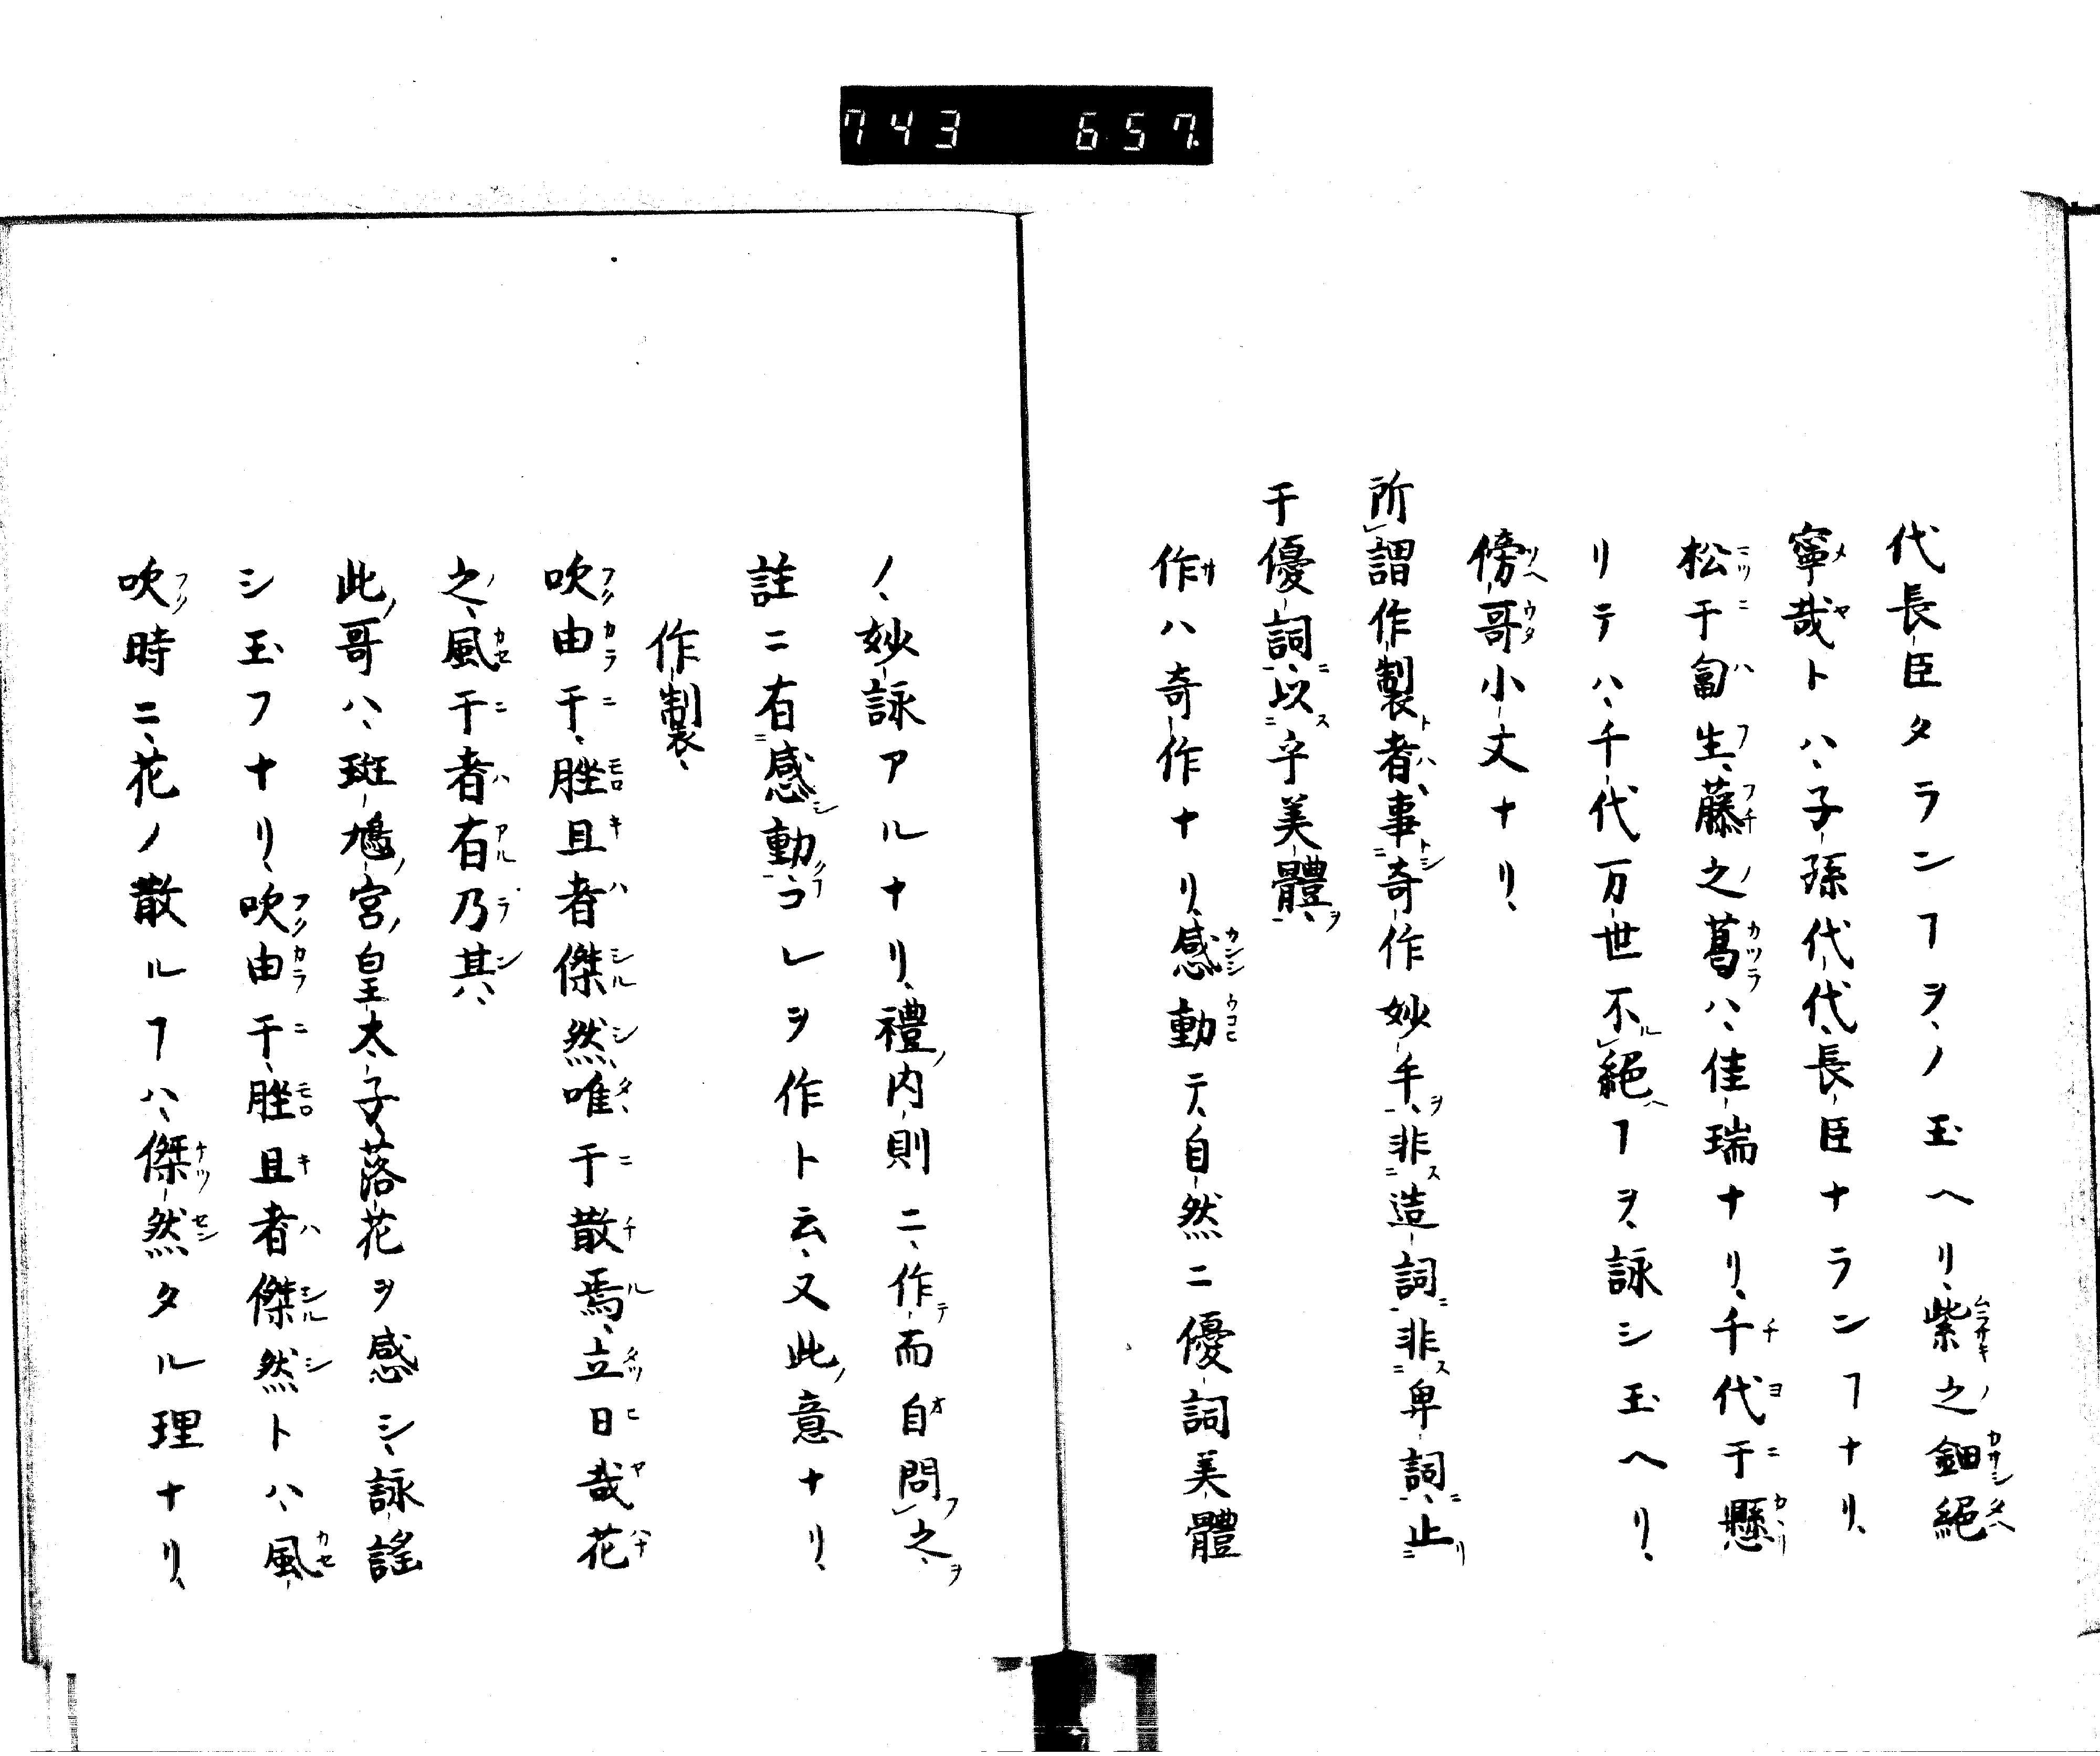 743 657
代長臣タランヿヲ、ノ玉ヘリ、紫之鈿絕
寧哉トハ、子孫代代、長臣ナランヿナリ、
松于匐生、藤之葛ハ、佳瑞ナリ、千代于懸
リテハ、千代万世不絕ヿヲ、詠シ玉ヘリ、
傍哥小丈ナリ、
所謂作製者、事奇作妙手、非造詞非卑詞、止
于優詞、以乎美體、
作ハ奇作ナリ、感動テ、自然ニ優詞美體
ノ、妙詠アルナリ、禮内則ニ、作而自問之、
註ニ有感動コレヲ作ト云、又此意ナリ、
作製、
吹由于、脞且者傑然唯于散焉、立日哉花
之、風于者有乃其、
此哥ハ、斑鳩宮皇太子、落花ヲ感シ、詠謠
シ玉フナリ、吹由于、脞且者傑然トハ、風
吹時ニ、花ノ散ルヿハ、傑然タル理ナリ、